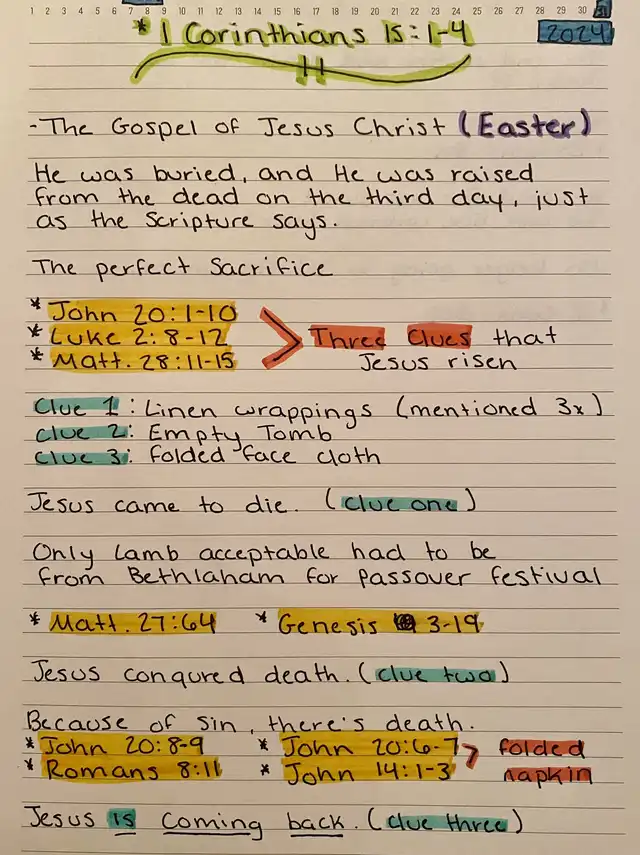 1 2 3 4 5 6 7 8 9 10 11 12 13 14 15 16 17 18 19 20 21 22 23 24 25 26 27 28 29 30 31
* 1 Corinthians 15:1-4
2024
- The Gospel of Jesus Christ (Easter)
He was buried, and He was raised
from the dead on the third day, just
as the Scripture says.
The perfect Sacrifice
* John 20:1-10
* Luke 2:8-12
* Matt. 28:11-15
Three Clues that
Jesus risen
Clue 1: Linen wrappings (mentioned 3x)
Clue 2: Empty Tomb
Clue 3: folded face cloth
Jesus came to die. (clue one)
Only Lamb acceptable had to be
from Bethlaham for Passover festival
* Matt. 27:64 * Genesis 3-19
Jesus conqured death. (clue two)
Because of Sin, there's death.
* John 20:8-9 * John 20:6-7 folded
* Romans 8:11 * John 14:1-3 napkin
Jesus is coming back. (clue three)